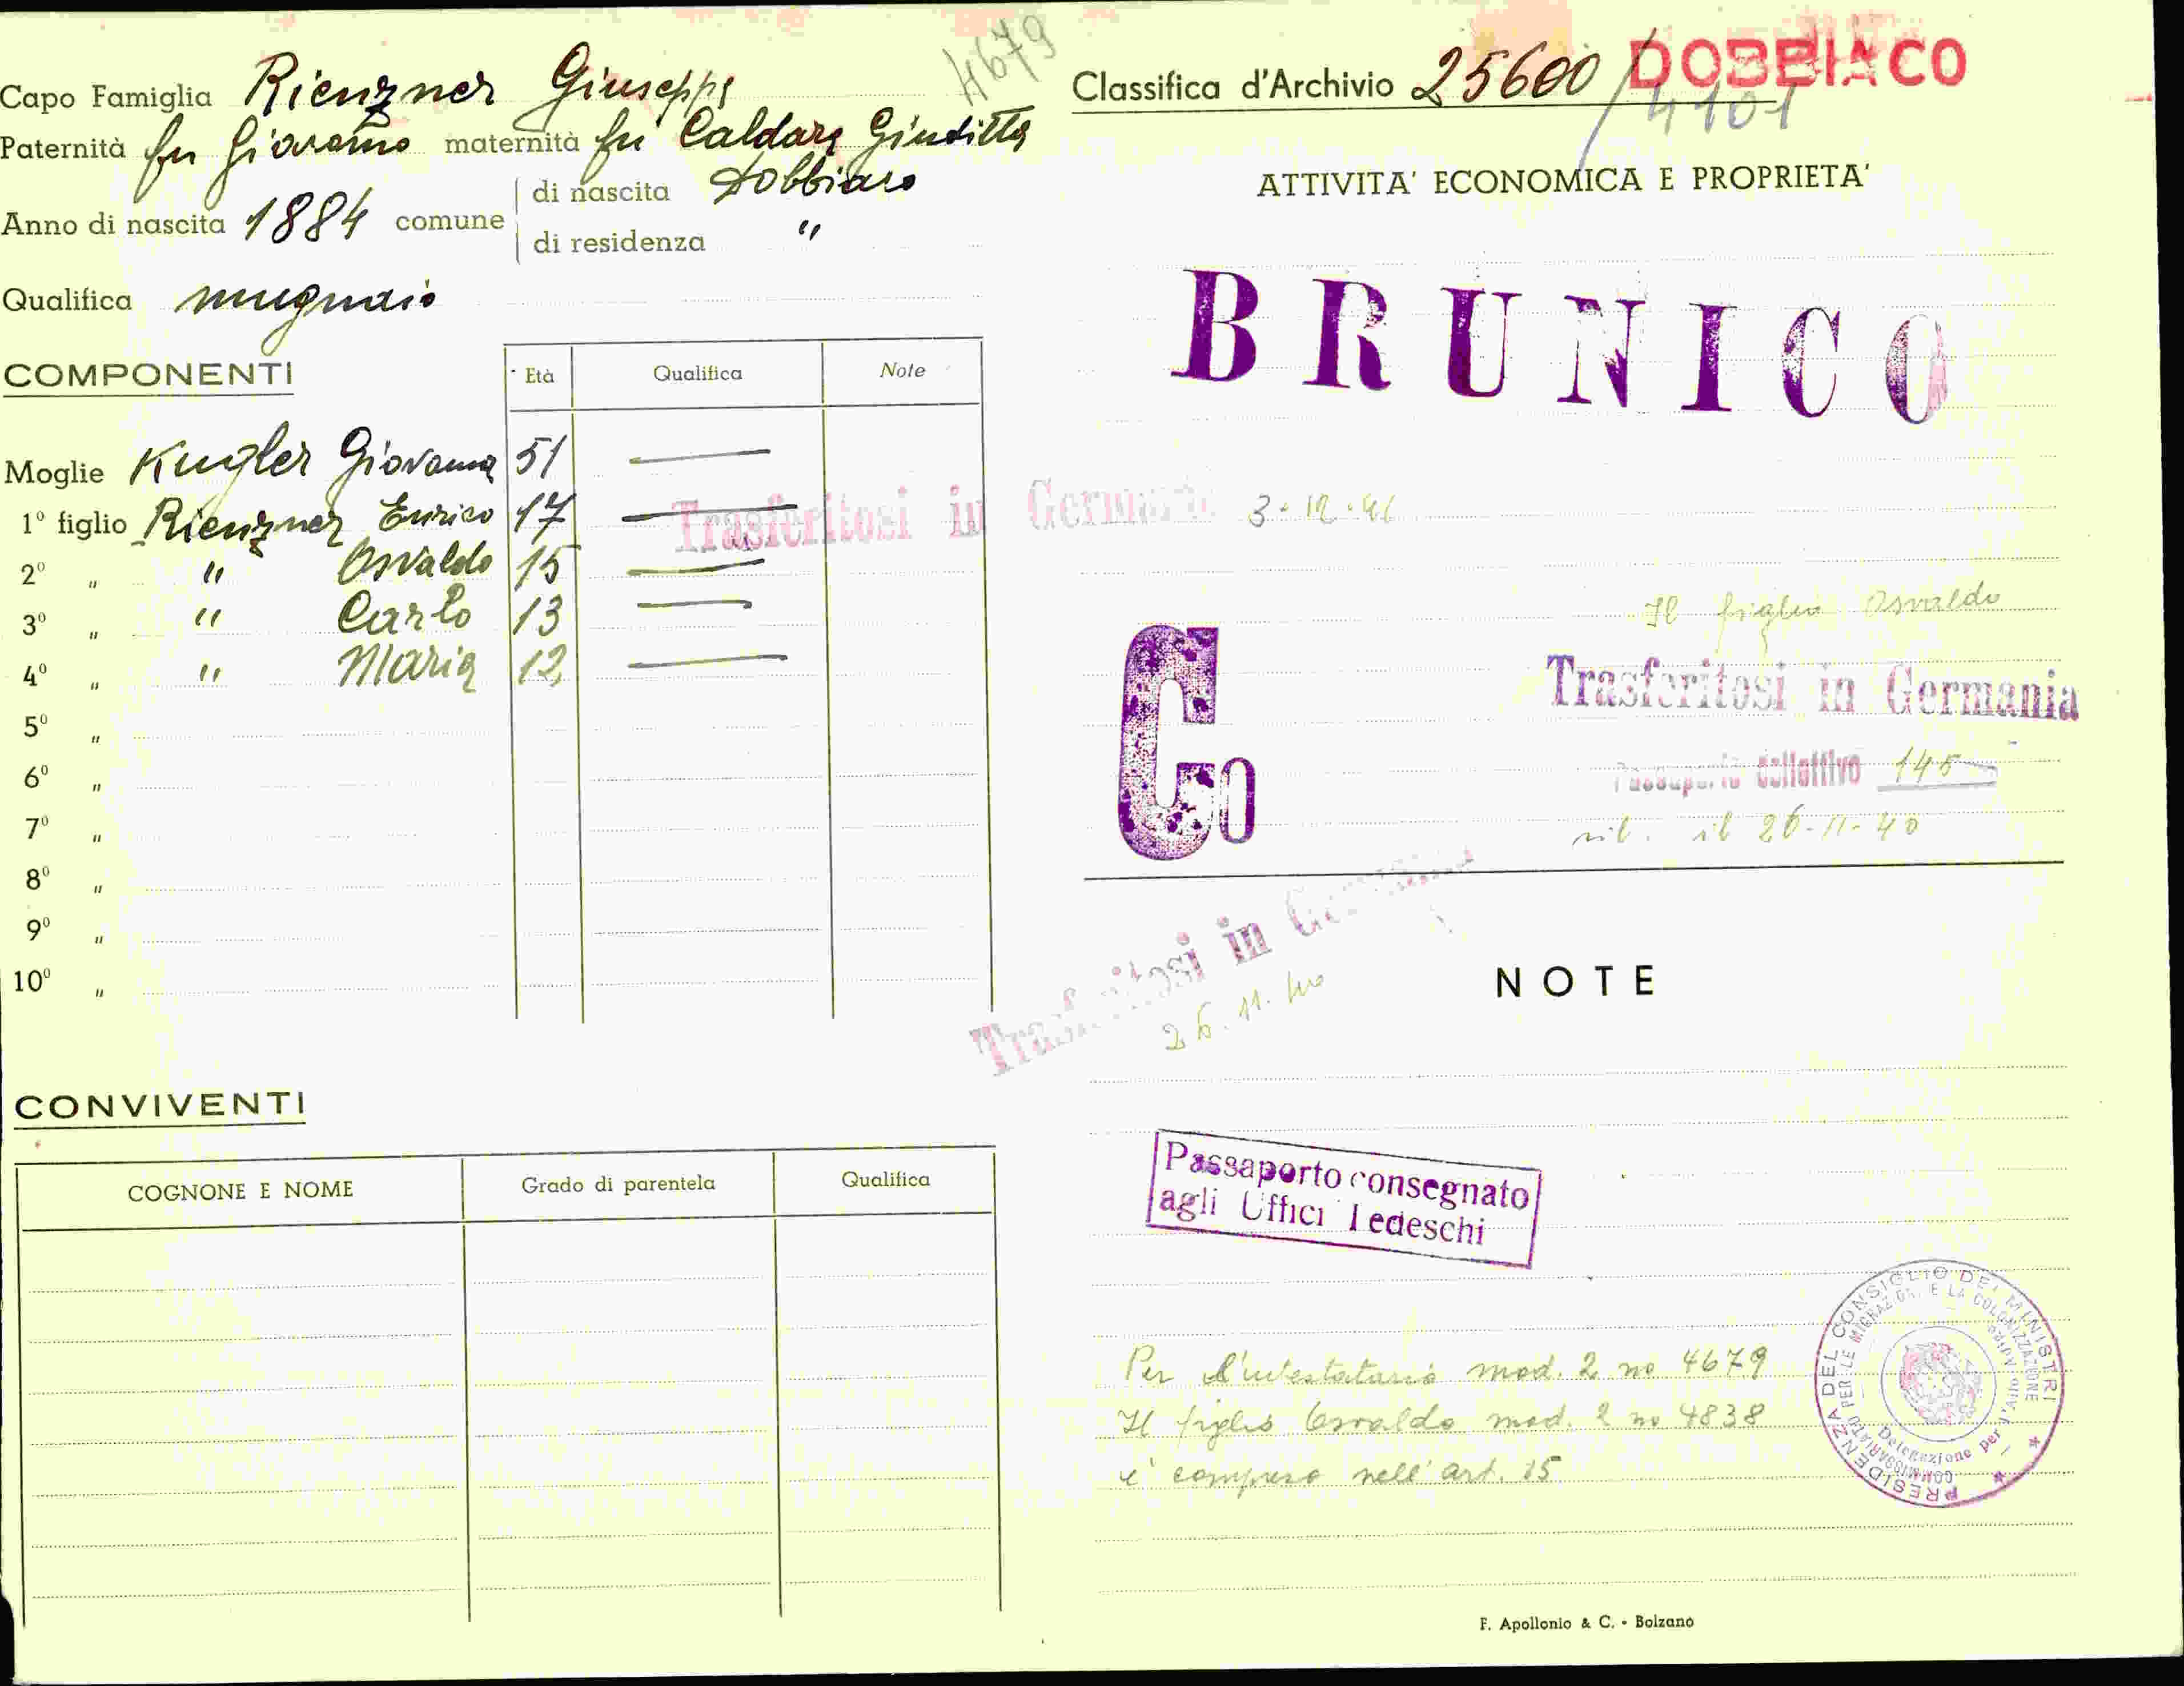 4679
Capo Famiglia Rienzner Giuseppe
Paternità fu Giovanni maternità fu Caldara Giuditta
Anno di nascita 1884 comune
di nascita Dobbiaco
di residenza "
Qualifica mugnaio
COMPONENTI Età Qualifica Note
Moglie Kugler Giovanna 51
1º figlio Rienzner Enrico 17
2º " " Osvaldo 15
3º " " Carlo 13
4º " " Maria 12
5º "
6º "
7º "
8º "
9º "
10º "
Trasferitosi in Germania 3-12-41
CONVIVENTI
COGNONE E NOME Grado di parentela Qualifica
Classifica d'Archivio 25600/ DOBBIACO
4101
ATTIVITA' ECONOMICA E PROPRIETA'
BRUNICO
Il figlio Osvaldo
Trasferitosi in Germania
Passaporto collettivo 145
ril. il 26-11-40
Co
Trasferitosi in Germania
26.11.40
NOTE
Passaporto consegnato
agli Uffici Tedeschi
Per l'intestatario mod. 2 no 4679
Il figlio Osvaldo mod. 2 no 4838
è compreso nell'art. 15
PRESIDENZA DEL CONSIGLIO DEI MINISTRI
COMMISSARIATO PER LE MIGRAZIONI E LA COLONIZZAZIONE
Delegazione per l'Alto Adige
F. Apollonio & C. - Bolzano